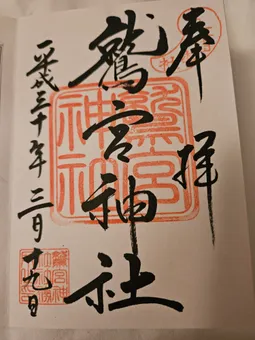 奉拝
鷲宮神社
平成三十年三月十九日
鷲宮神社